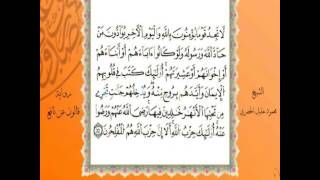 لَا تَجِدُ قَوْمًا يُؤْمِنُونَ بِاللَّهِ وَالْيَوْمِ الْآخِرِ يُوَادُّونَ مَنْ
حَادَّ اللَّهَ وَرَسُولَهُ وَلَوْ كَانُوا ءَابَاءَهُمْ أَوْ أَبْنَاءَهُمْ
أَوْ إِخْوَانَهُمْ أَوْ عَشِيرَتَهُمْ أُوْلَئِكَ كَتَبَ فِي قُلُوبِهِمُ
الْإِيمَانَ وَأَيَّدَهُمْ بِرُوحٍ مِنْهُ وَيُدْخِلُهُمْ جَنَّاتٍ تَجْرِي
مِنْ تَحْتِهَا الْأَنْهَارُ خَالِدِينَ فِيهَا رَضِيَ اللَّهُ عَنْهُمْ وَرَضُوا
عَنْهُ أُوْلَئِكَ حِزْبُ اللَّهِ أَلَا إِنَّ حِزْبَ اللَّهِ هُمُ الْمُفْلِحُونَ
الشيخ
محمود خليل الحصري
برواية
قالون عن نافع